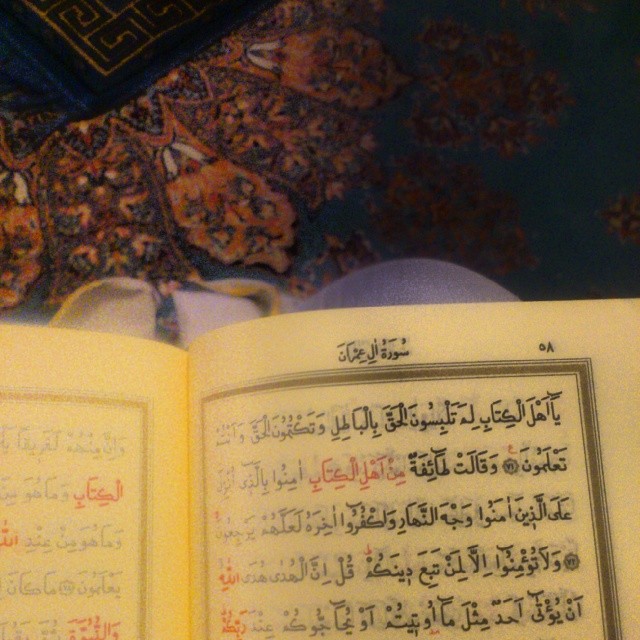 سُورَةُ اٰلِ عِمْرَانَ
٥٨
يَٓا اَهْلَ الْكِتَابِ لِمَ تَلْبِسُونَ الْحَقَّ بِالْبَاطِلِ وَتَكْتُمُونَ الْحَقَّ وَاَنْتُمْ
تَعْلَمُونَ وَقَالَتْ طَٓائِفَةٌ مِنْ اَهْلِ الْكِتَابِ اٰمِنُوا بِالَّذ۪ٓي اُنْزِلَ
عَلَى الَّذ۪ينَ اٰمَنُوا وَجْهَ النَّهَارِ وَاكْفُرُٓوا اٰخِرَهُ لَعَلَّهُمْ يَرْجِعُونَ
وَلَا تُؤْمِنُٓوا اِلَّا لِمَنْ تَبِعَ د۪ينَكُمْ قُلْ اِنَّ الْهُدٰى هُدَى اللّٰهِ
اَنْ يُؤْتٰٓى اَحَدٌ مِثْلَ مَٓا اُو۫ت۪يتُمْ اَوْ يُحَٓاجُّوكُمْ عِنْدَ رَبِّكُمْ
وَاِنَّ مِنْهُمْ لَفَر۪يقًا
الْكِتَابِ وَمَا هُوَ مِنَ
وَمَا هُوَ مِنْ عِنْدِ اللّٰهِ
يَعْلَمُونَ مَا كَانَ
وَالنُّبُوَّةَ